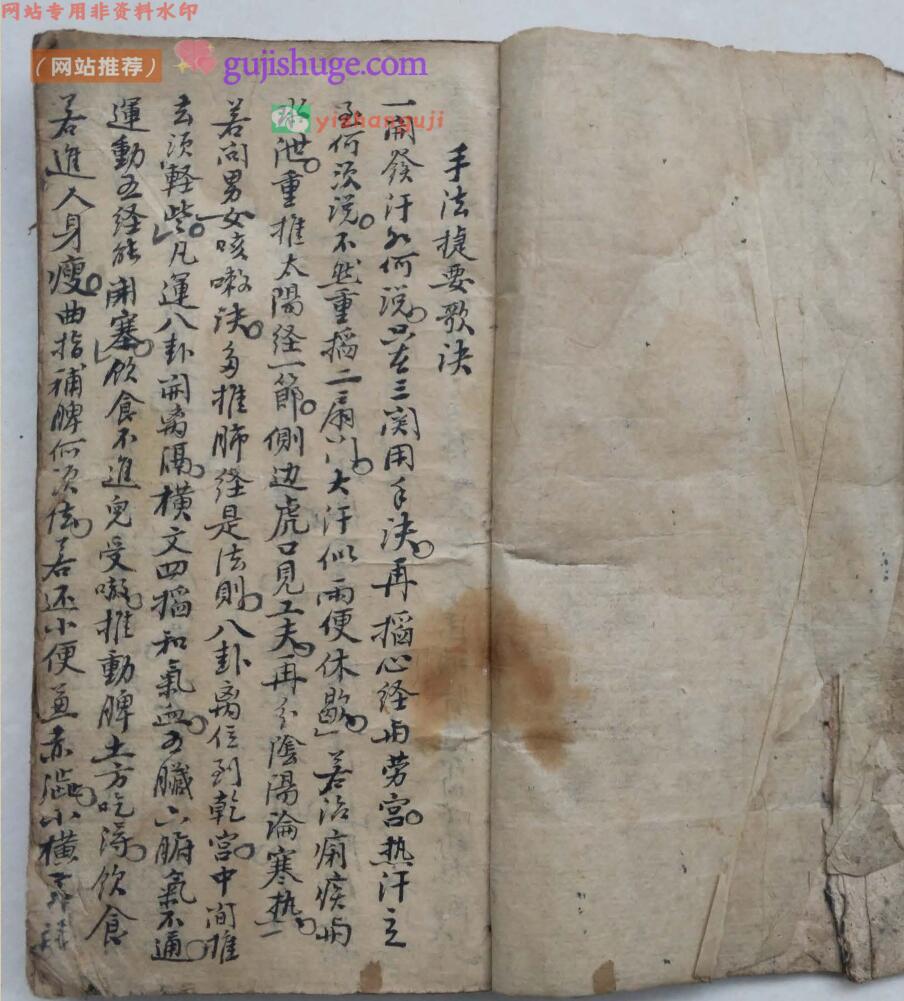 网站专用非资料水印
（网站推荐）
gujishuge.com
yizhanguji
手法捷要歌决
一開發汗如何說只在三関用手决再搯心経与劳宫热汗立
至何須說不然重搯二扇门大汗似雨便休歇若治痢疾与
水泄重推太陽経一節側边虎口見工夫再分陰陽論寒热
若问男女咳嗽诀多推肺经是法則八卦离位到乾宫中间推
去須軽些凡運八卦開离隔横文四搯和氣血五臟六腑氣不通
運動五经能開塞飲食不進兒受嚇推動脾土方吃得飲食
若進人身瘦曲指補脾何須法若还小便兼赤澁小横